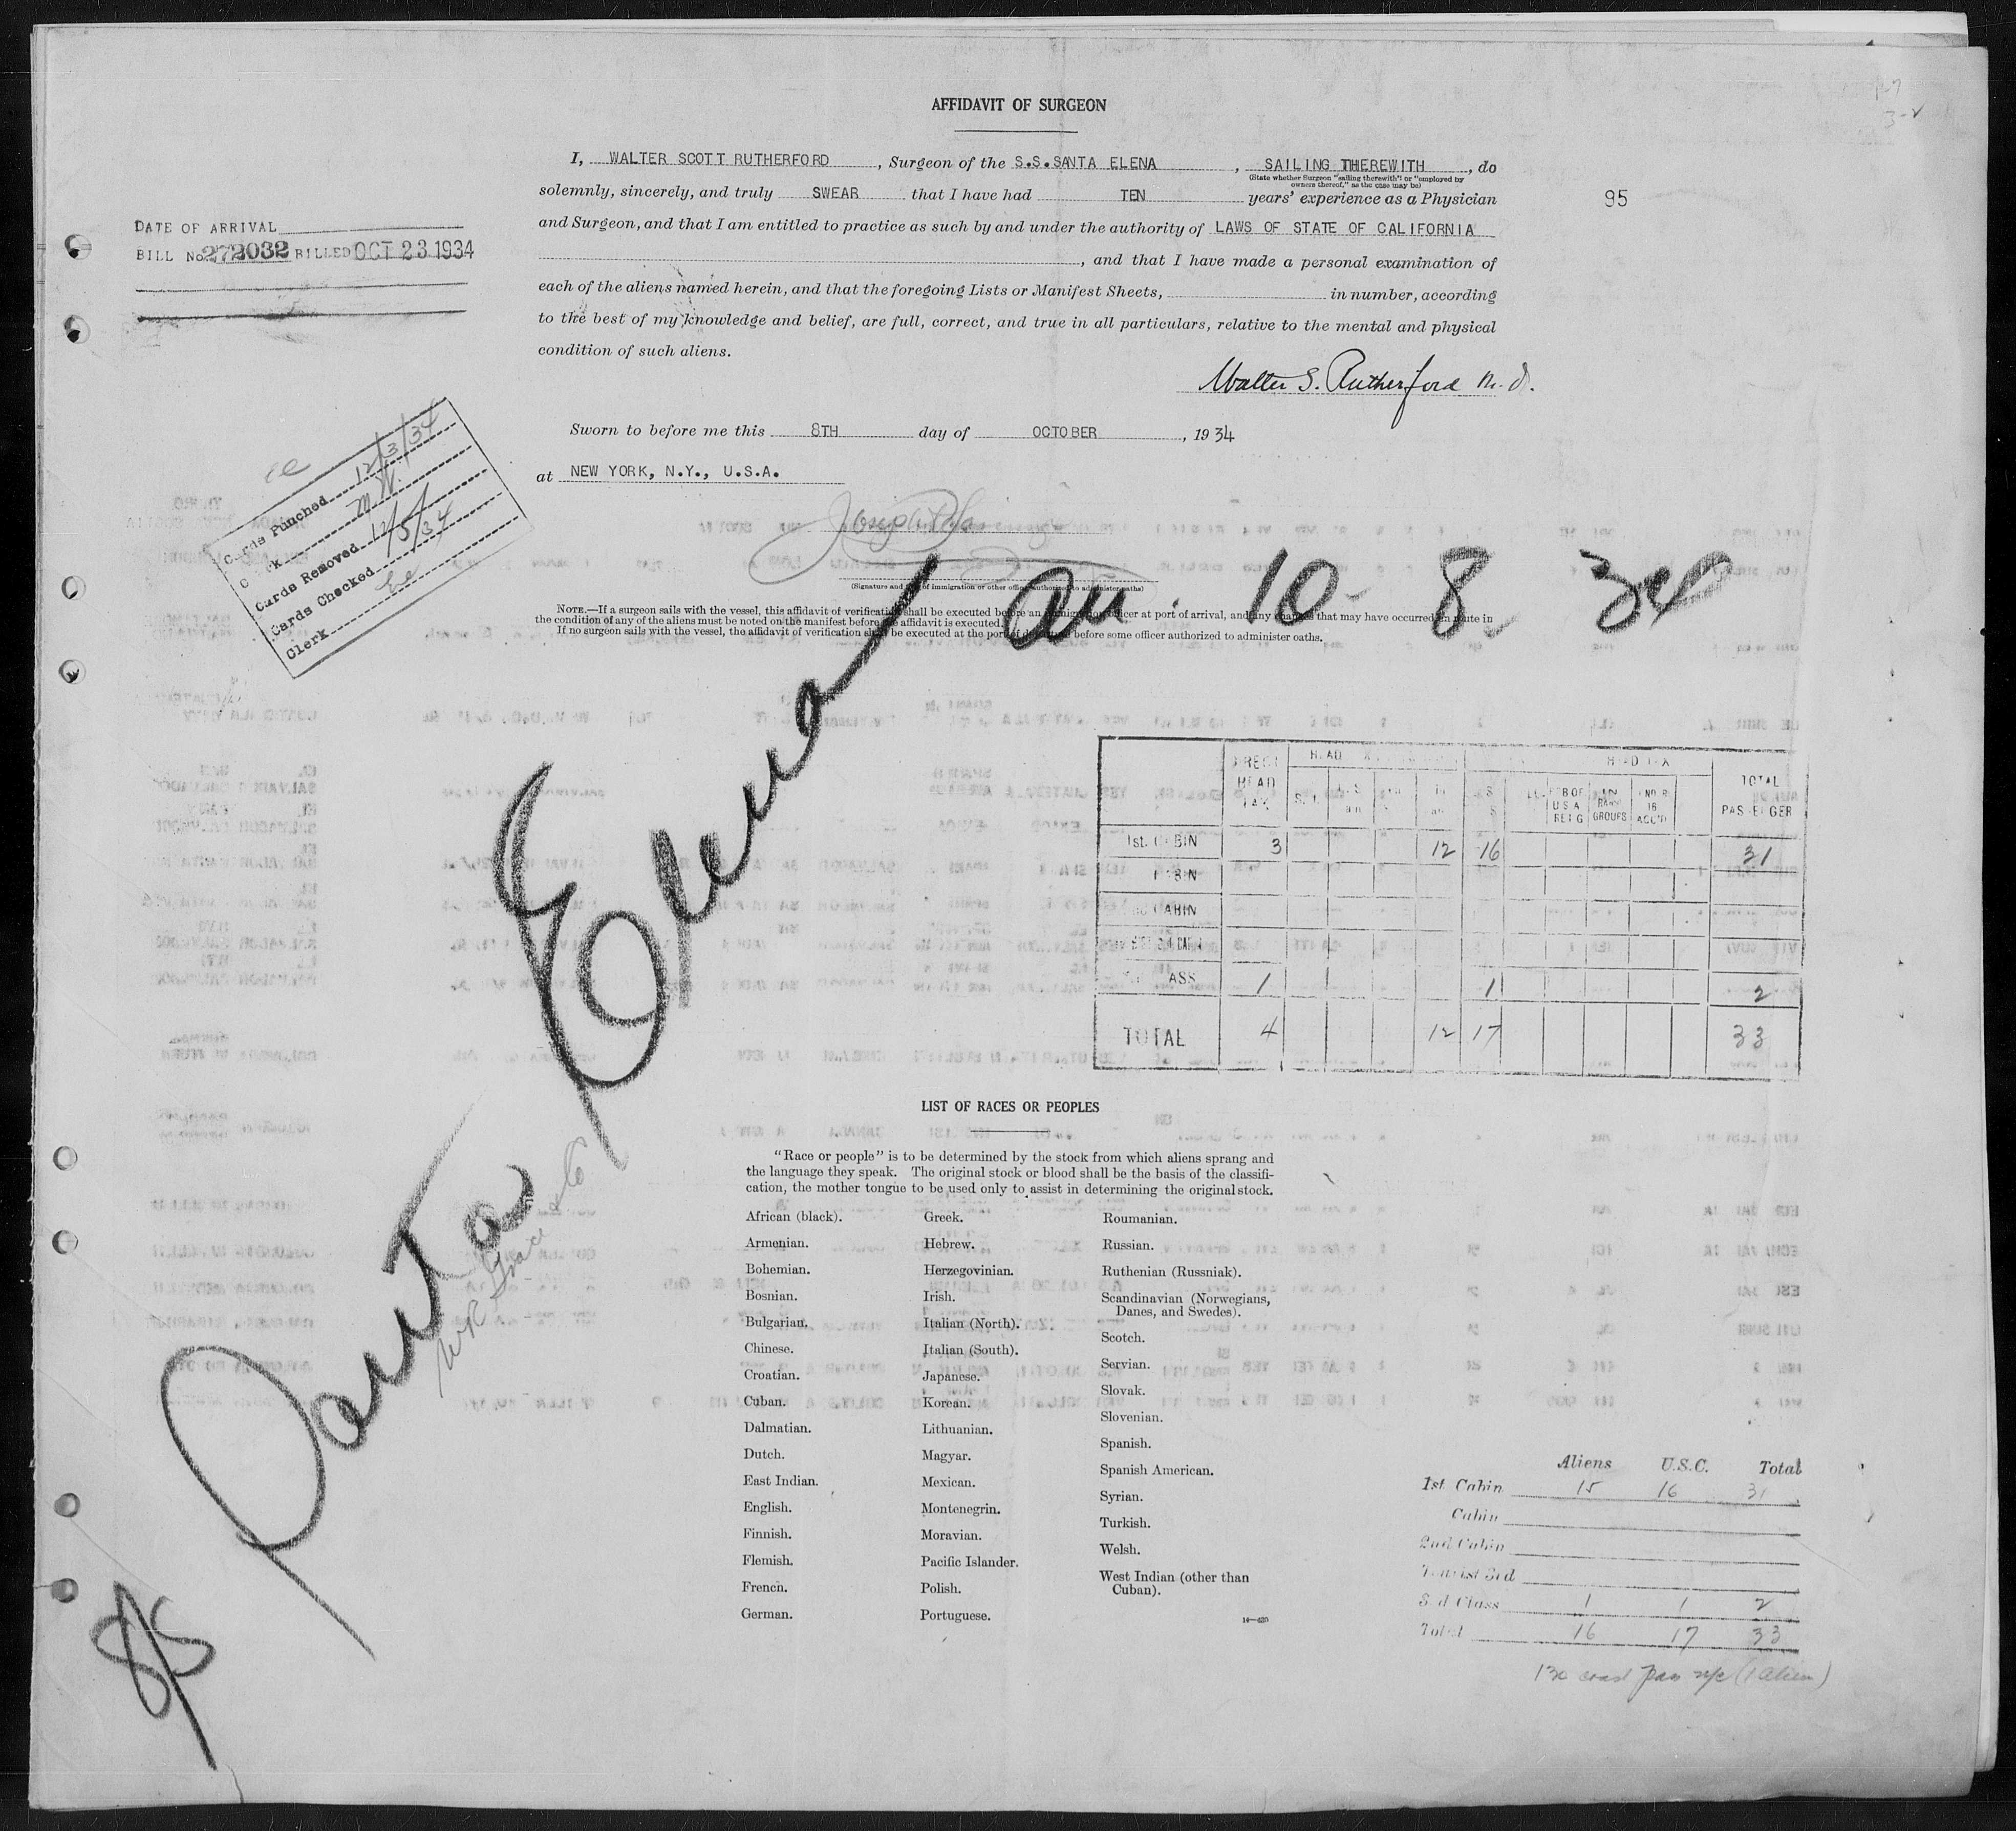 AFFIDAVIT OF SURGEON
I, WALTER SCOTT RUTHERFORD, Surgeon of the S.S.SANTA ELENA, SAILING THEREWITH, do
(State whether Surgeon "sailing therewith" or "employed by
owners thereof," as the case may be)
solemnly, sincerely, and truly SWEAR that I have had TEN years' experience as a Physician
and Surgeon, and that I am entitled to practice as such by and under the authority of LAWS OF STATE OF CALIFORNIA
, and that I have made a personal examination of
each of the aliens named herein, and that the foregoing Lists or Manifest Sheets, in number, according
to the best of my knowledge and belief, are full, correct, and true in all particulars, relative to the mental and physical
condition of such aliens.
Walter S. Rutherford M.D.
95
DATE OF ARRIVAL
BILL No. 272032 BILLED OCT 23 1934
Sworn to before me this 8TH day of OCTOBER, 1934
at NEW YORK, N.Y., U.S.A.
Cards Punched 12/3/34
Clerk M W.
Cards Removed 12/5/34
Cards Checked
Clerk
(Signature and title of immigration or other officer authorized to administer oaths)
NOTE.—If a surgeon sails with the vessel, this affidavit of verification shall be executed before an immigration officer at port of arrival, and any changes that may have occurred en route in
the condition of any of the aliens must be noted on the manifest before the affidavit is executed.
If no surgeon sails with the vessel, the affidavit of verification shall be executed at the port of before some officer authorized to administer oaths.
Santa Elena
arr. 10-8-34
WR Grace & Co
8/S
DIRECT HEAD TAX
HEAD TAX
TOTAL PASSENGER
1st. CABIN 3 12 16 31
CABIN
2nd CABIN
CLASS 1 1 2
TOTAL 4 12 17 33
LIST OF RACES OR PEOPLES
"Race or people" is to be determined by the stock from which aliens sprang and
the language they speak. The original stock or blood shall be the basis of the classifi-
cation, the mother tongue to be used only to assist in determining the original stock.
African (black).
Armenian.
Bohemian.
Bosnian.
Bulgarian.
Chinese.
Croatian.
Cuban.
Dalmatian.
Dutch.
East Indian.
English.
Finnish.
Flemish.
French.
German.
Greek.
Hebrew.
Herzegovinian.
Irish.
Italian (North).
Italian (South).
Japanese.
Korean.
Lithuanian.
Magyar.
Mexican.
Montenegrin.
Moravian.
Pacific Islander.
Polish.
Portuguese.
Roumanian.
Russian.
Ruthenian (Russniak).
Scandinavian (Norwegians,
Danes, and Swedes).
Scotch.
Servian.
Slovak.
Slovenian.
Spanish.
Spanish American.
Syrian.
Turkish.
Welsh.
West Indian (other than
Cuban).
Aliens U.S.C. Total
1st Cabin 15 16 31
Cabin
2nd Cabin
Tourist 3rd
3rd Class 1 1 2
Total 16 17 33